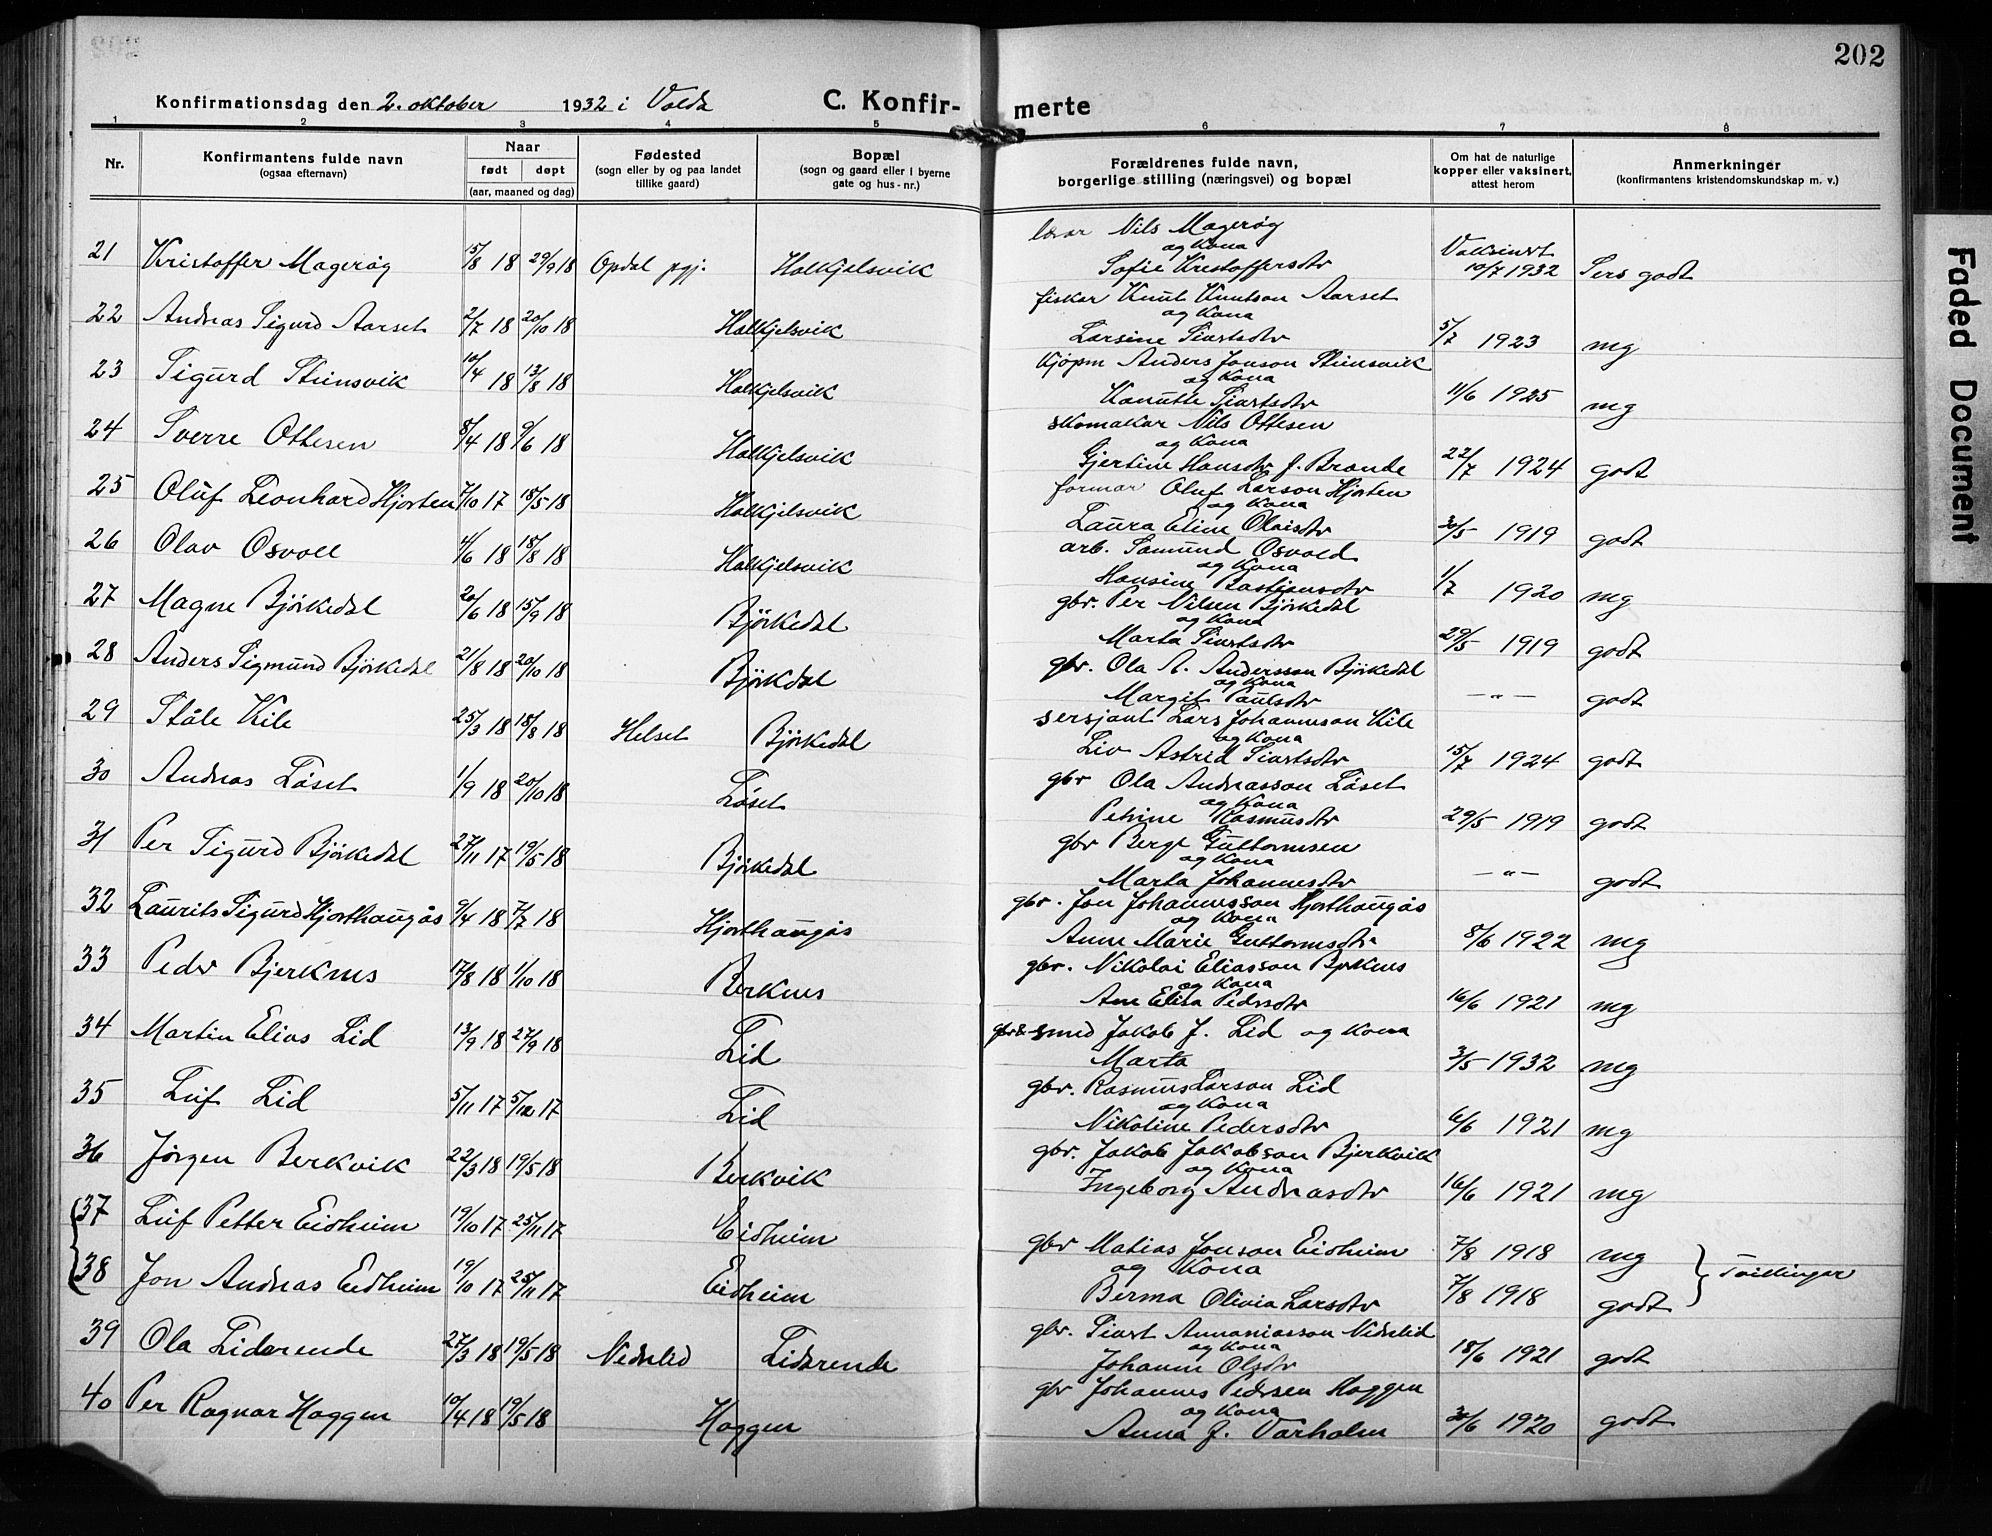 202
Konfirmationsdag den 2. oktober 1932 i Volda
C. Konfir- merte
1 2 3 4 5 6 7 8
Nr.
Konfirmantens fulde navn
(ogsaa efternavn)
Naar
født døpt
(aar, maaned og dag)
Fødested
(sogn eller by og paa landet
tillike gaard)
Bopæl
(sogn og gaard eller i byerne
gate og hus-nr.)
Forældrenes fulde navn,
borgerlige stilling (næringsvei) og bopæl
Om hat de naturlige
kopper eller vaksinert,
attest herom
Anmerkninger
(konfirmantens kristendomskundskap m. v.)
lærar Nils Magerøg
og Kona
21 Kristoffer Magerøg 15/8 18 29/9 18 Opdal pgj. Halkjelsvik Sofie Kristoffersdtr Vaksinert 10/7 1932 Sers godt
fiskar Knut Knutson Aarset
og Kona
22 Andreas Sigurd Aarset 2/7 18 20/10 18 Halkjelsvik Larsine Sivertsdtr 5/7 1923 mg
Kjøpm Anders Jonson Steinsvik
og Kona
23 Sigurd Steinsvik 10/4 18 13/8 18 Halkjelsvik Kanutte Sivertsdtr 11/6 1925 mg
skomakar Nils Ottesen
og Kona
24 Sverre Ottesen 8/4 18 9/6 18 Halkjelsvik Gjertine Hansdtr f. Brande 22/7 1924 godt
formar Oluf Larson Hjorten
og Kona
25 Oluf Leonhard Hjorten 7/10 17 18/5 18 Halkjelsvik Laura Eline Olaisdtr 30/5 1919 godt
arb. Samund Osvold
og Kona
26 Olav Osvoll 4/6 18 18/8 18 Halkjelsvik Hansine Bastiansdtr 1/7 1920 mg
gbr. Per Nilsen Bjørkedal
og Kona
27 Magne Bjørkedal 20/6 18 15/9 18 Bjørkedal Marta Sivertsdtr 29/5 1919 godt
gbr. Ola A. Andersson Bjørkedal
og Kona
28 Anders Sigmund Bjørkedal 21/8 18 20/10 18 Bjørkdal Margit Paulsdtr — " — godt
sersjant Lars Johannson Kile
og Kona
29 Ståle Kile 25/3 18 18/8 18 Helset Bjørkedal Liv Astrid Sivertsdtr 15/7 1924 godt
gbr Ola Andreasson Løset
og Kona
30 Andreas Løset 1/9 18 20/10 18 Løset Petrine Rasmusdtr 29/5 1919 godt
gbr Bergt Guttormsen
og Kona
31 Per Sigurd Bjørkedal 27/11 17 19/5 18 Bjørkedal Marta Johannesdtr — " — godt
gbr. Jon Johannesson Hjorthaugås
og Kona
32 Laurits Sigurd Hjorthaugås 9/4 18 7/7 18 Hjorthaugås Anne Marie Guttormsdtr 8/6 1922 mg
gbr. Nikolai Eliasson Bjerknes
og Kona
33 Peder Bjerknes 17/8 18 1/10 18 Berknes Ane Elisa Pedersdtr 16/6 1921 mg
gbr & smed Jakob J. Lid og Kona
34 Martin Elias Lid 13/9 18 27/9 18 Lid Marta 3/5 1932 mg
gbr. Rasmus Larson Lid
og Kona
35 Leif Lid 5/11 17 5/12 17 Lid Nikoline Pedersdtr 6/6 1921 mg
gbr. Jakob Jakobson Bjerkvik
og Kona
36 Jørgen Berkvik 22/3 18 19/5 18 Berkvik Ingeborg Andreasdtr 16/6 1921 mg
37 Leif Petter Eidheim 19/10 17 25/11 17 Eidheim gbr Matias Jonson Eidheim 7/8 1918 mg
og Kona
Tvillingar
38 Jon Andreas Eidheim 19/10 17 25/11 17 Eidheim Berma Olivia Larsdtr 7/8 1918 godt
gbr. Sivert Annaniasson Nedrelid
og Kona
39 Ola Liderende 27/3 18 19/5 18 Nedrelid Liderende Johanne Olsdtr 18/6 1921 godt
gbr Johannes Pedersen Haggen
og Kona
40 Per Ragnar Haggen 10/4 18 19/5 18 Haggen Anna f. Varholm 30/6 1920 godt
Faded Document